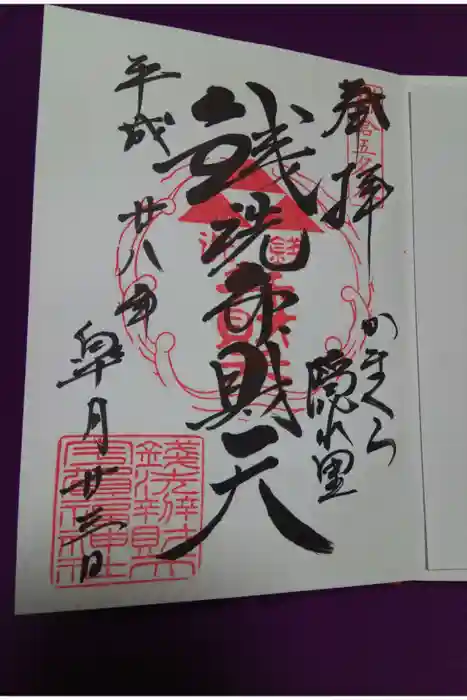 奉拝
かまくら
隠れ里
銭洗弁財天
平成
廿八年
皐月廿三日
銭洗弁財天
宇賀福神社